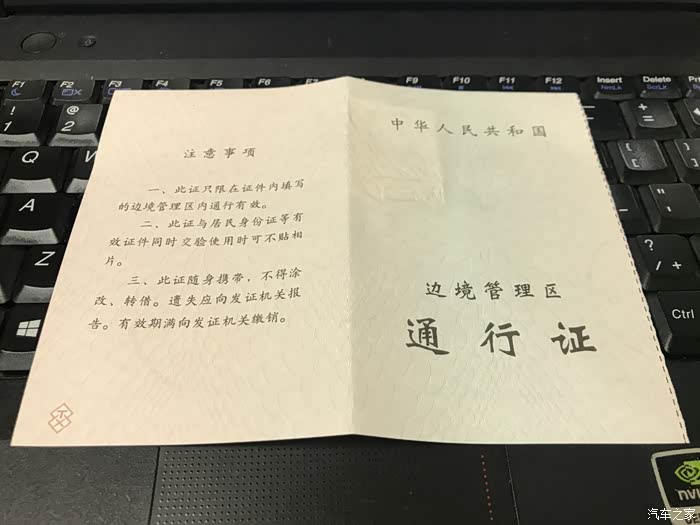 F1 F2 F3 F4 F5 F6 F9 F10 F11 F12 Insert Delete
NmLk ScrLk
! 1 @ 2
Q
A
Z
? /
Ctrl
注意事项
一、此证只限在证件内填写
的边境管理区内通行有效。
二、此证与居民身份证等有
效证件同时交验使用时可不贴相
片。
三、此证随身携带，不得涂
改、转借。遗失应向发证机关报
告。有效期满向发证机关缴销。
中华人民共和国
边境管理区
通行证
汽车之家